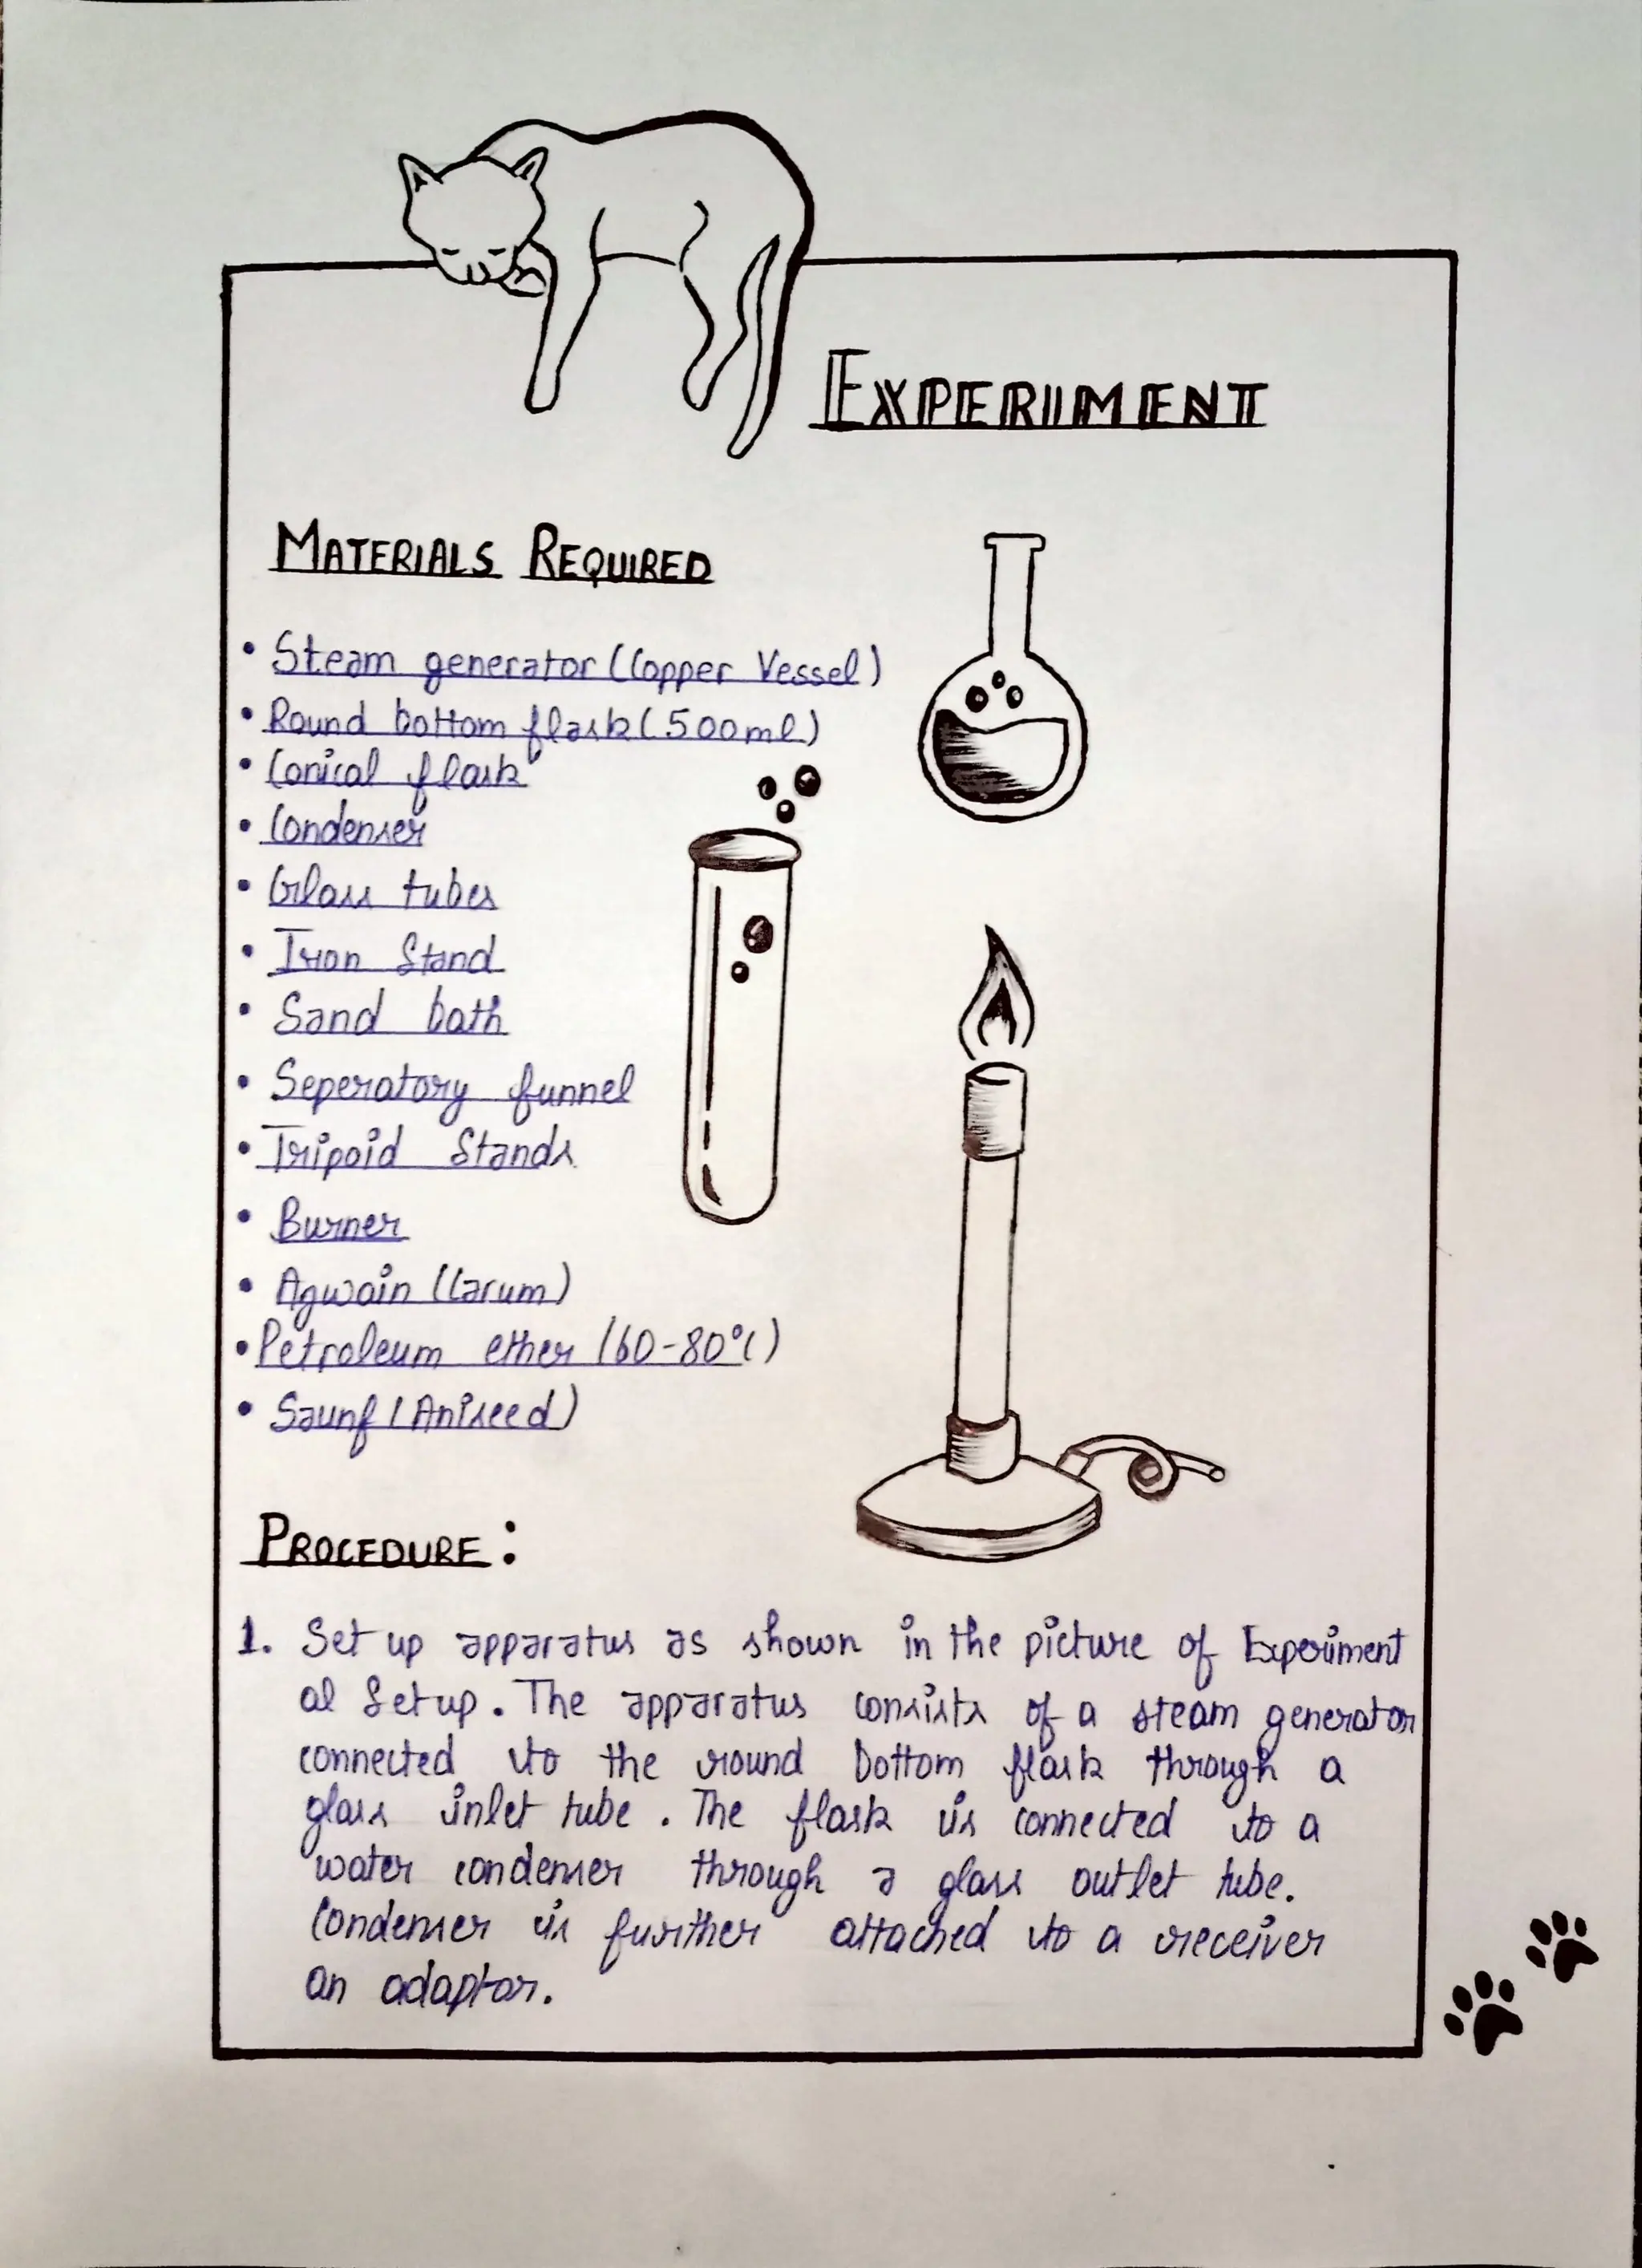 EXPERIMENT
MATERIALS REQUIRED
• Steam generator (Copper Vessel)
• Round bottom flask (500ml)
• Conical flask
• Condenser
• Glass tubes
• Iron Stand
• Sand bath
• Seperatory funnel
• Tripoid Stands
• Burner
• Agwain (Carum)
• Petroleum ether (60-80°C)
• Saunf (Aniseed)
PROCEDURE:
1. Set up apparatus as shown in the picture of Experiment
al Setup. The apparatus consists of a steam generator
connected to the round bottom flask through a
glass inlet tube. The flask is connected to a
water condenser through a glass outlet tube.
Condenser is further attached to a receiver
an adaptor.